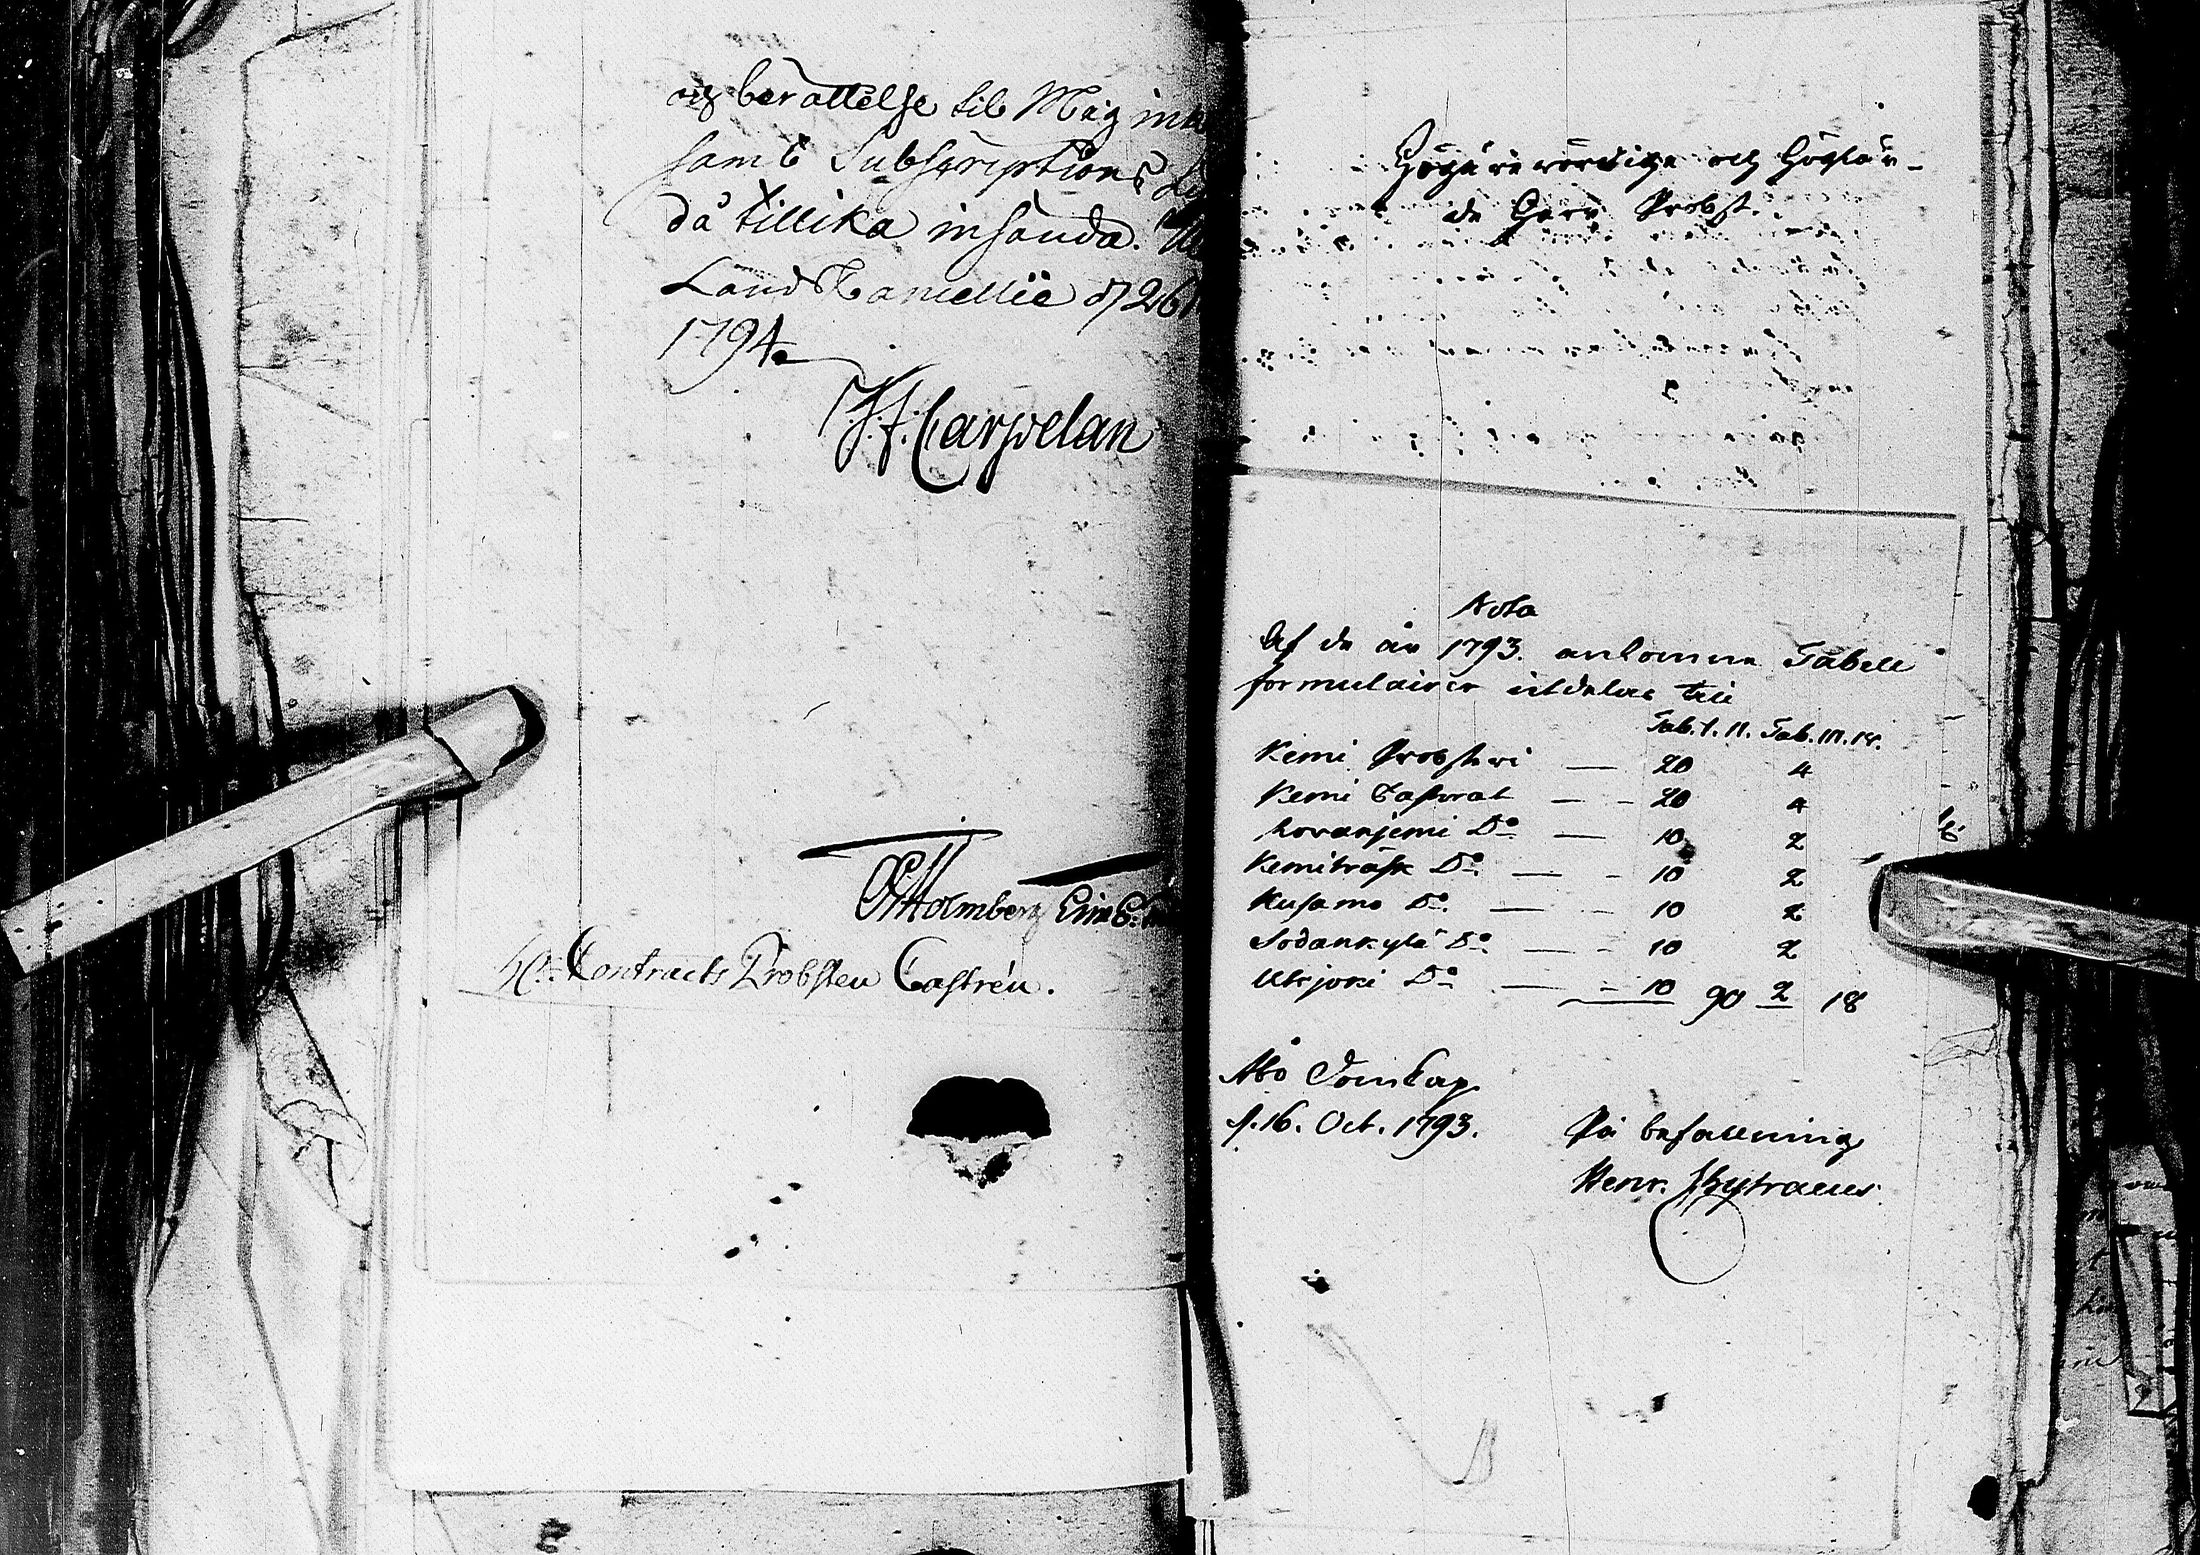 och berättelse til Mig
samt Subscriptions
då tillika insända.
Land Cancellie d 26
1794.
Carpelan
Holmberg
H. Contracts Probsten Castrén.
Högärevördige och Höglär-
de Herr Probst.
Nota
Af de år 1793. ankomne Tabell
formulairer utdelas till
Tab. I. II. Tab. III. IV.
Kemi Probsteri — 20 4
Kemi Pastorat — 20 4
Rovanjemi Do — 10 2
Kemiträsk Do. — 10 2
Kusamo Do. — 10 2
Sodankylä Do — 10 2
Utsjoki Do — 10 90 2 18
Åbo Domkap.
d. 16. Oct. 1793.
På befallning
Henr.